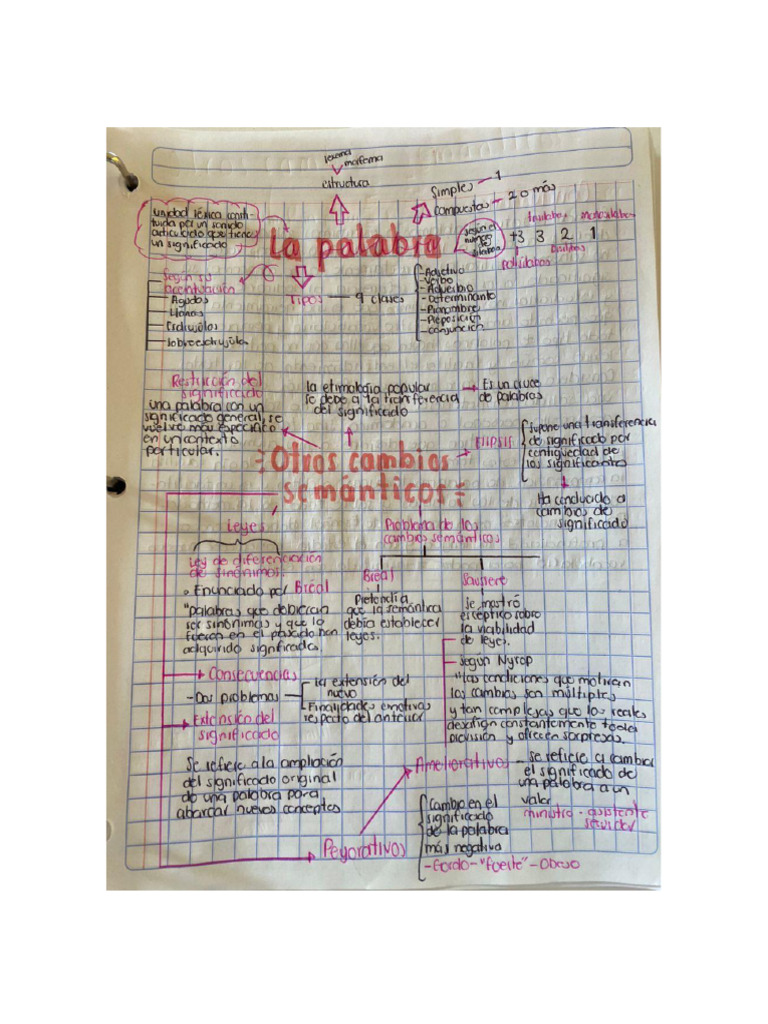 lexema
morfema
estructura
Simples - 1
Compuestas - 2 o más
unidad léxica consti-
tuida por un sonido
articulado que tiene
un significado
La palabra
según el
número
de
sílabas
trisílabas monosílabas
+3 3 2 1
bisílabas
polisílabas
Según su
acentuación
Agudas
Llanas
Esdrújulas
Sobreesdrújula
Tipos - 9 clases
-Adjetivo
-Verbo
-Adverbio
-Determinante
-Pronombre
-Preposición
-Conjunción
Restricción del
significado
una palabra con un
significado general, se
vuelve más específico
en un contexto
particular.
la etimología popular
se debe a la transferencia
del significado
Es un cruce
de palabras
Otros cambios
semánticos
Elipsis
Supone una transferencia
de significado por
contigüedad de
los significantes
Ha conducido a
cambios de
significado
Leyes
Ley de diferenciación
de sinónimos.
Enunciado por Bréal
"palabras que debieran
ser sinónimas y que lo
fueron en el pasado han
adquirido significados.
Problema de los
cambios semánticos
Bréal
Pretendía
que la semántica
debía establecer
leyes.
Saussere
Se mostró
escéptico sobre
la viabilidad
de leyes.
según Nyrop
"Las condiciones que motivan
los cambios son múltiples
y tan complejas que los reales
desafian constantemente toda
previsión y ofrecen sorpresas.
Consecuencias
-Dos problemas
-La extensión del
nuevo
-Finalidades emotivas
respecto del anterior
Extensión del
significado
Se refiere a la ampliación
del significado original
de una palabra para
abarcar nuevos conceptos
Ameliorativos
-se refiere a cambiar
el significado de
una palabra a un
valor
ministro - asistente
servidor
Peyorativos
Cambio en el
significado
de la palabra
más negativa
-Gordo-"fuerte"-Obeso